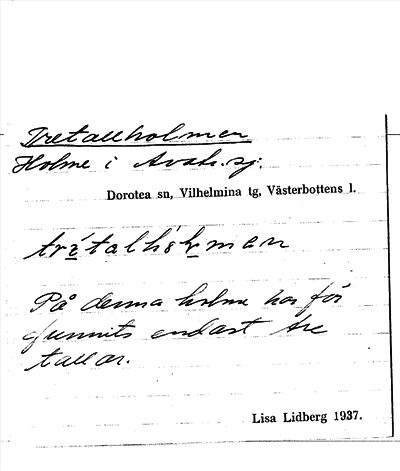 Tretallholmen
Holme i Avasj.
Dorotea sn, Vilhelmina tg, Västerbottens l.
På denna holme har för
funnits endast tre
tallar.
Lisa Lidberg 1937.